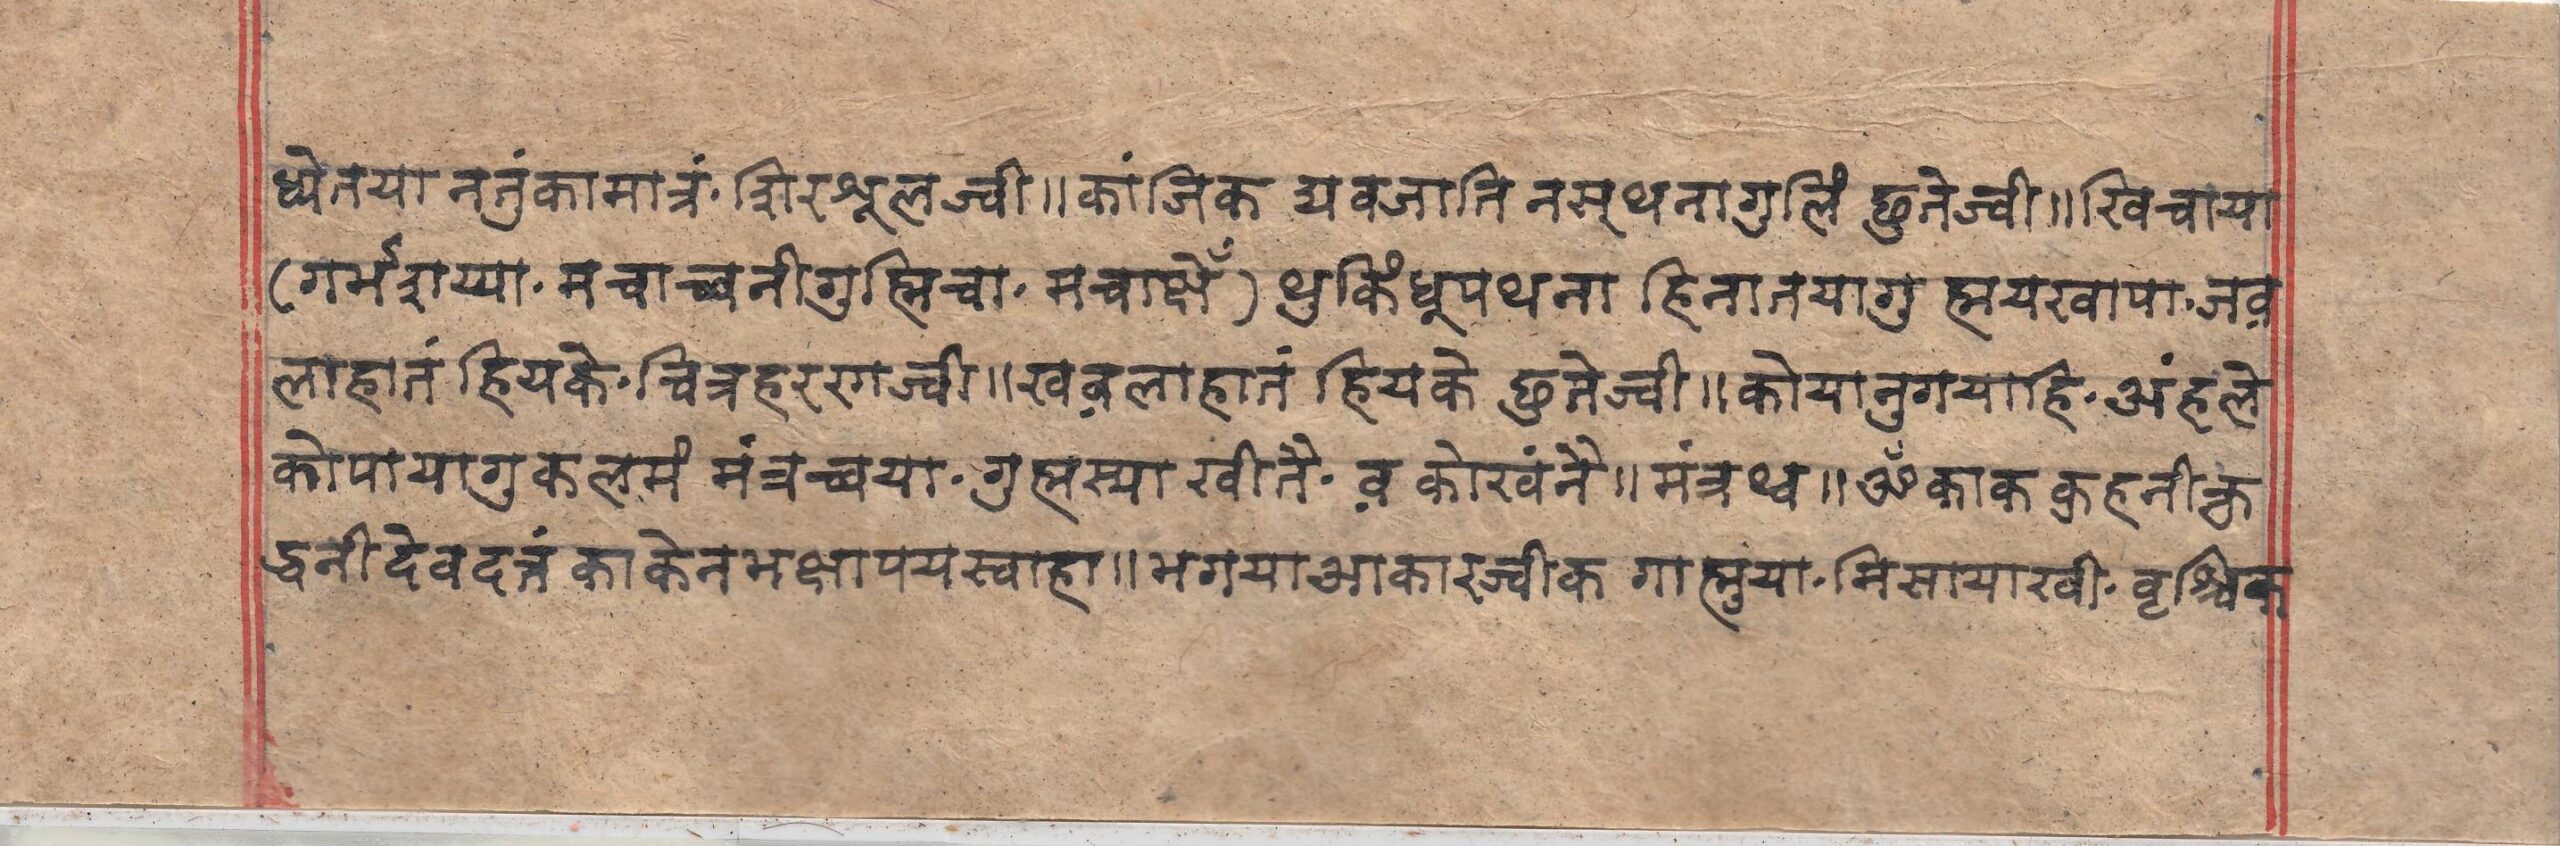 ध्येतया नतुंकामात्रं· शिरश्रूलज्वी॥कांजिक द्यवजाति नस्थनागुलिं छुतेज्वी॥खिचाया
(गर्भशय्या· मचाच्वनीगुह्मिचा· मचाछेँ) थुकिंधूपथना हिनातयागु ह्मयखापा·जव़
लाहातं हियके·चित्रहररगज्वी॥खव़लाहातं हियके छुतेज्वी॥कोयानुगयाहि·अंहले
कोपायागुकलमं मंत्रच्वया·गुह्मस्या खीतै·व़ कोखंनै॥मंत्रथ्व॥ॐकाक कुहनीक्रु
द्धनीदेवदत्तं काकेनभक्षापयस्वाहा॥भगयाआकारज्वीक गाह्मुया·मिसायाखी·वृश्चिक